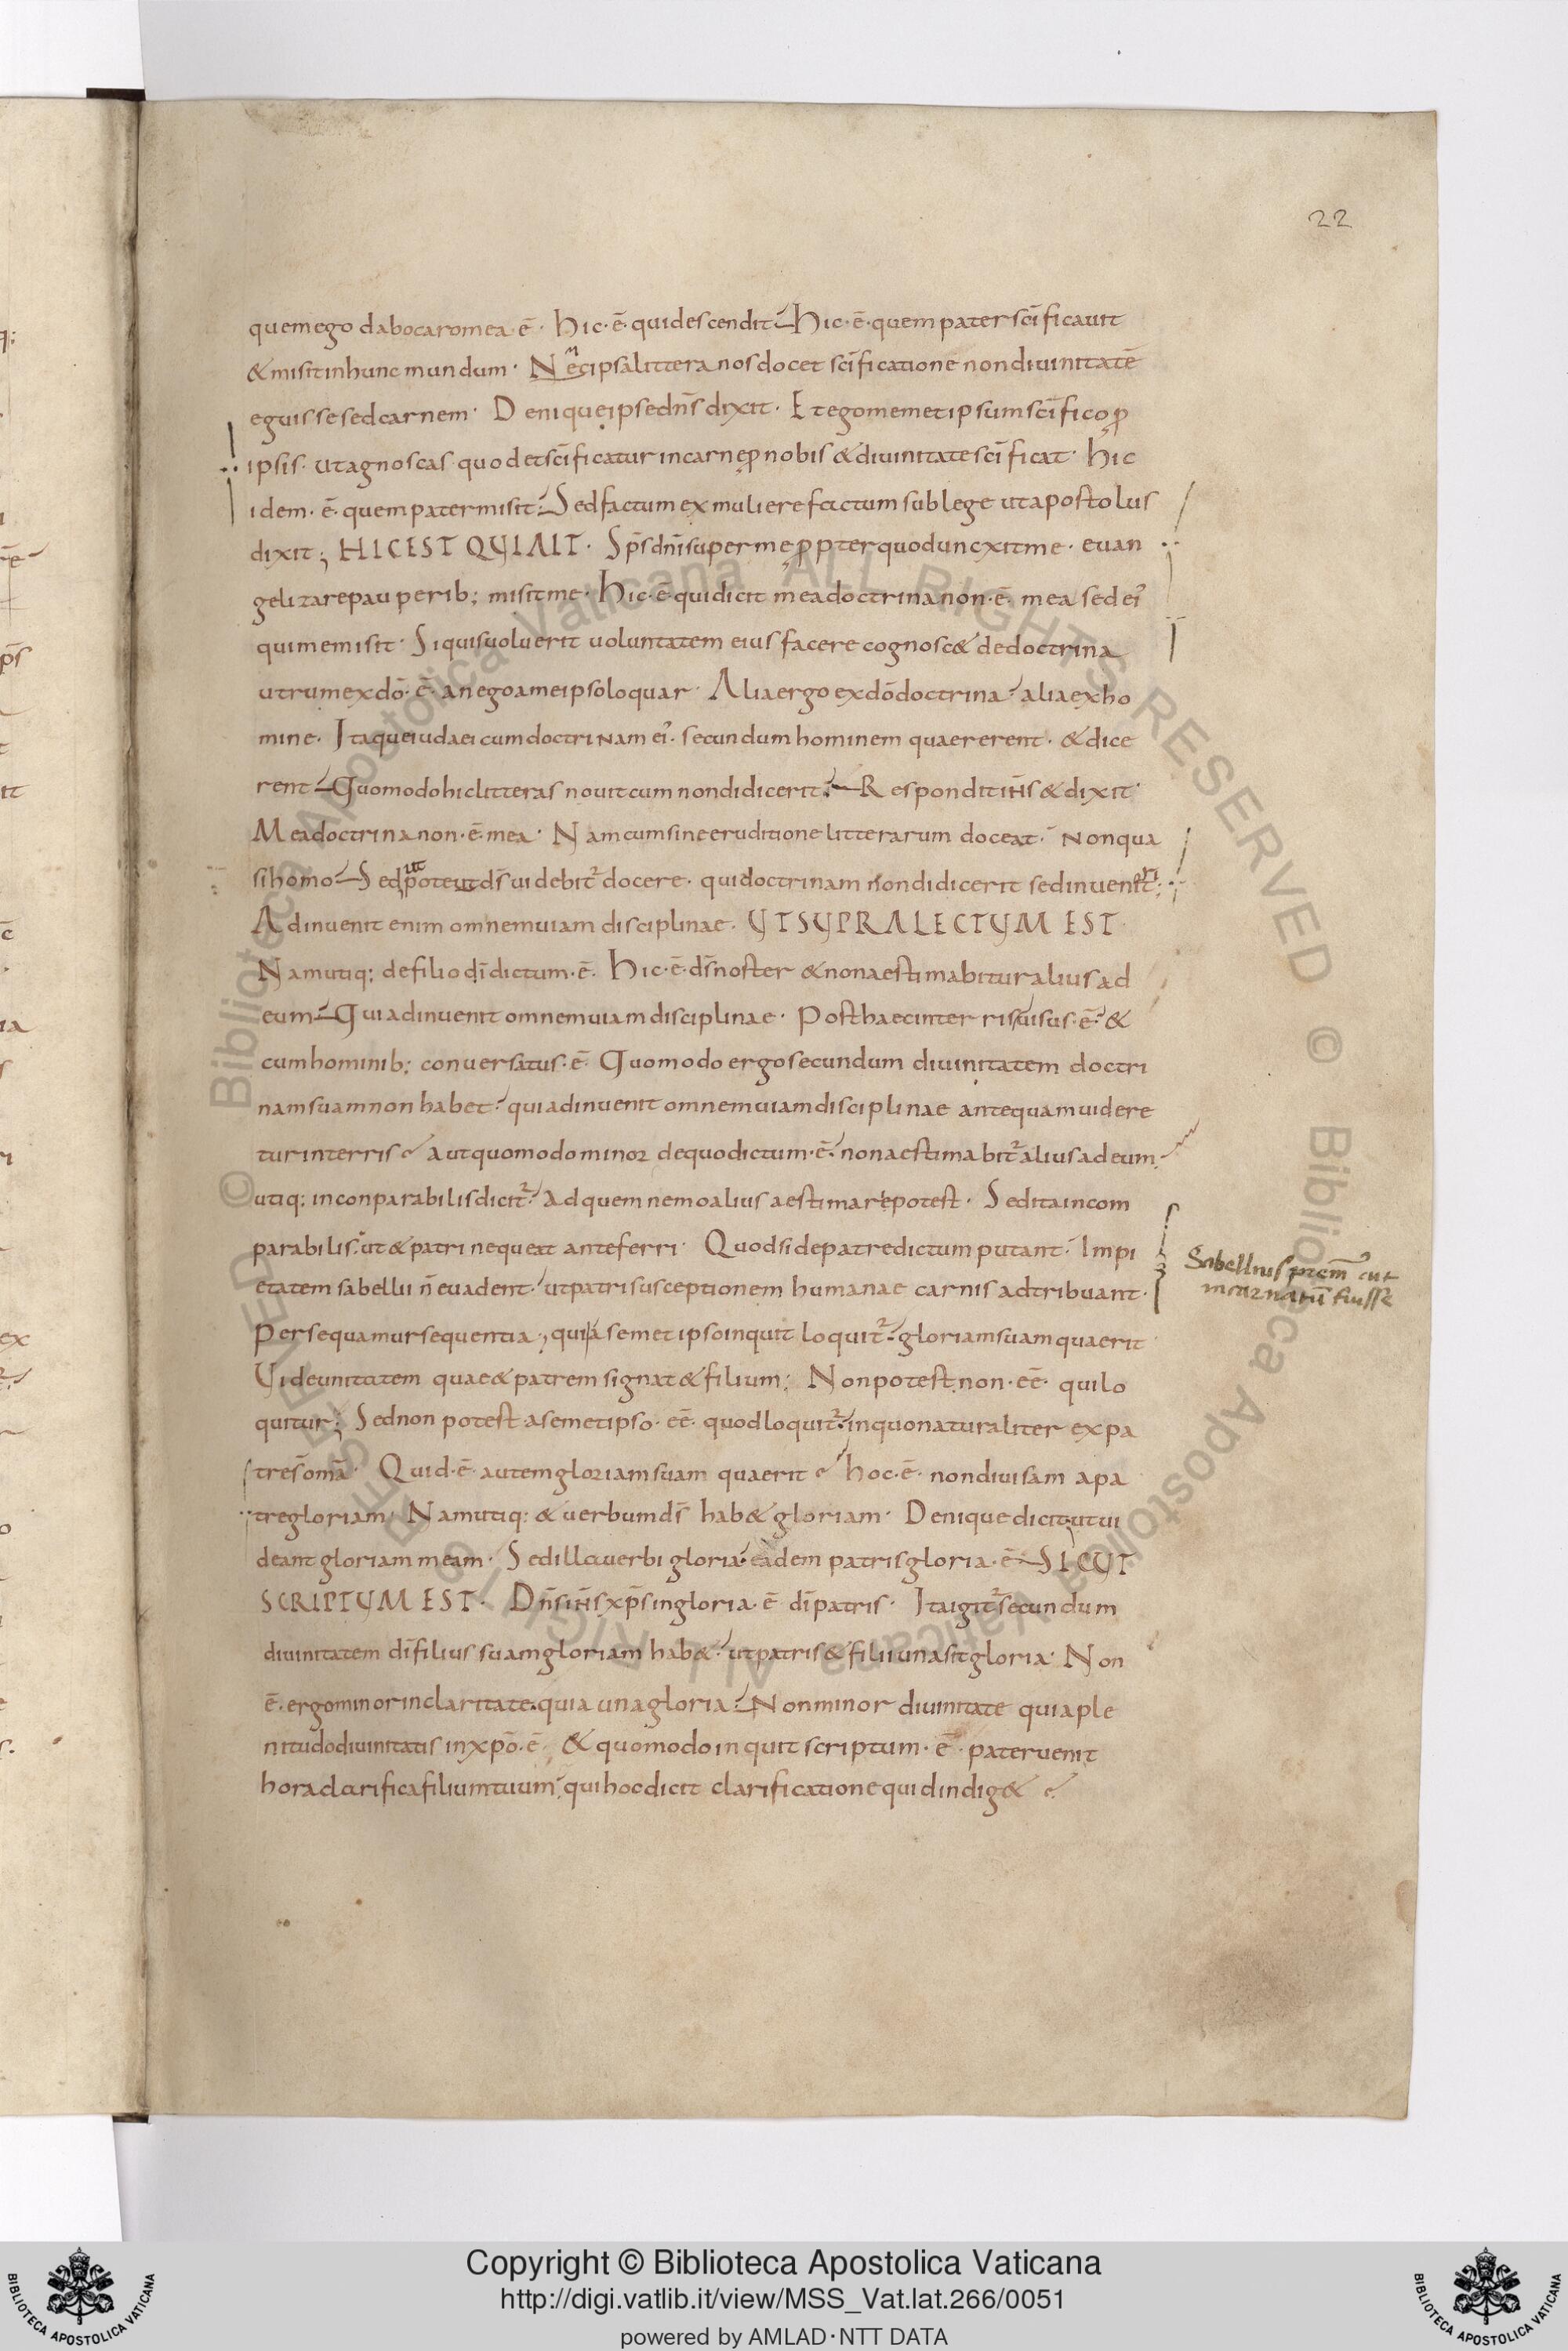 22
quem ego dabo caro mea·ē· Hic·ē·qui descendit Hic·ē·quem pater scīficauit
& misit in hunc mundum· N ipsa littera nos docet scīficatione non diuinitatē
eguisse sed carnem· Denique ipse dn̄s dixit· Et ego memetipsum scīfico ꝓ
ipsis· ut agnoscas quod et scīficatur in carne ꝓ nobis & diuinitate scīficat· Hic
idem·ē·quem pater misit Sed factum ex muliere factum sub lege ut apostolus
dixit; HIC EST QUI AIT· Sp̄s dn̄i super me ꝓpter quod uncxit me· euan
gelizare pauperib; misit me· Hic·ē·qui dicit mea doctrina non·ē·mea sed ei'
qui me misit· Si quis uoluerit uoluntatem eius facere cognosc& de doctrina
utrum ex dō·ē·an ego a me ipso loquar· Alia ergo ex dō doctrina alia ex ho
mine· Itaque iudaei cum doctrinam ei'· secundum hominem quaererent· & dice
rent Quomodo hic litteras nouit cum non didicerit· Respondit ih̄s & dixit·
Mea doctrina non·ē·mea· Nam cum sine eruditione litterarum doceat· non qua
si homo Sed potē ut ds̄ uidebit' docere· qui doctrinam non didicerit sed inuenerit;
Adinuenit enim omnem uiam disciplinae· UT SUPRA LECTUM EST·
Nam utiq; de filio dī dictum·ē· Hic·ē·ds̄ noster & non aestimabitur alius ad
eum Qui adinuenit omnem uiam disciplinae· Post haec in terris uisus·ē· &
cum hominib; conuersatus·ē· Quomodo ergo secundum diuinitatem doctri
nam suam non habet· qui adinuenit omnem uiam disciplinae antequam uidere
tur in terris aut quomodo minor de quo dictum·ē· non aestimabit' alius ad eum
utiq; inconparabilis dicit' Ad quem nemo alius aestimari potest· Sed ita incom
parabilis· ut & patri nequeat anteferri· Quod si de patre dictum putant· Impi
etatem sabellii n̄ euadent· ut patri susceptionem humanae carnis adtribuant·
Sabellius prem̄
incarnatū fuisse
Persequamur sequentia; qui a semetipso inquit loquit' gloriam suam quaerit
Vide unitatem quae & patrem signat & filium; Non potest non·eē·qui lo
quitur; Sed non potest a semetipso·eē·quod loquit' in quo naturaliter ex pa
tre s̄ omā· Quid·ē·autem gloriam suam quaerit Hoc·ē·non diuisam a pa
tre gloriam· Nam utiq; & uerbum ds̄ hab& gloriam· Denique dicit ut ui
deant gloriam meam· Sed illa uerbi gloria eadem patris gloria·ē SICUT
SCRIPTUM EST· Dn̄s ih̄s xp̄s in gloria·ē dī patris· Ita igit' secundum
diuinitatem dī filius suam gloriam hab&· ut patris & filii una sit gloria· Non
ē· ergo minor in claritate· quia una gloria Non minor diuinitate quia ple
nitudo diuinitatis in xpō·ē· & quomodo inquit scriptum·ē· pater uenit
hora clarifica filium tuum· qui hoc dicit clarificatione quid indig&
© Biblioteca Apostolica Vaticana ALL RIGHTS RESERVED © Biblioteca Apostolica Vaticana ALL RIGHTS RESERVED
Copyright © Biblioteca Apostolica Vaticana
http://digi.vatlib.it/view/MSS_Vat.lat.266/0051
powered by AMLAD·NTT DATA
BIBLIOTECA APOSTOLICA VATICANA
BIBLIOTECA APOSTOLICA VATICANA